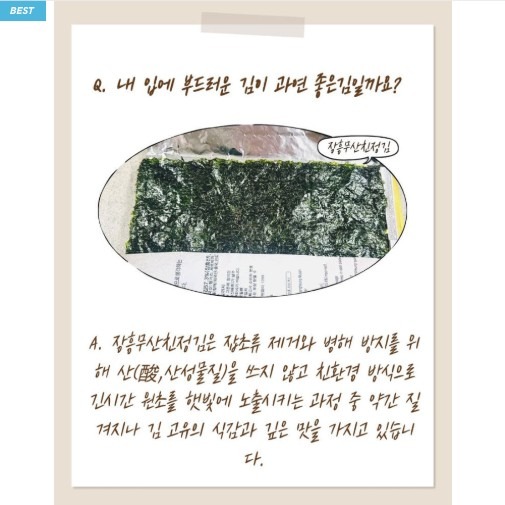 BEST
Q. 내 입에 부드러운 김이 과연 좋은김일까요?
장흥무산친정김
A. 장흥무산친정김은 잡초류 제거와 병해 방지를 위
해 산(酸,산성물질)을 쓰지 않고 친환경 방식으로
긴시간 원초를 햇빛에 노출시키는 과정 중 약간 질
겨지나 김 고유의 식감과 깊은 맛을 가지고 있습니
다.